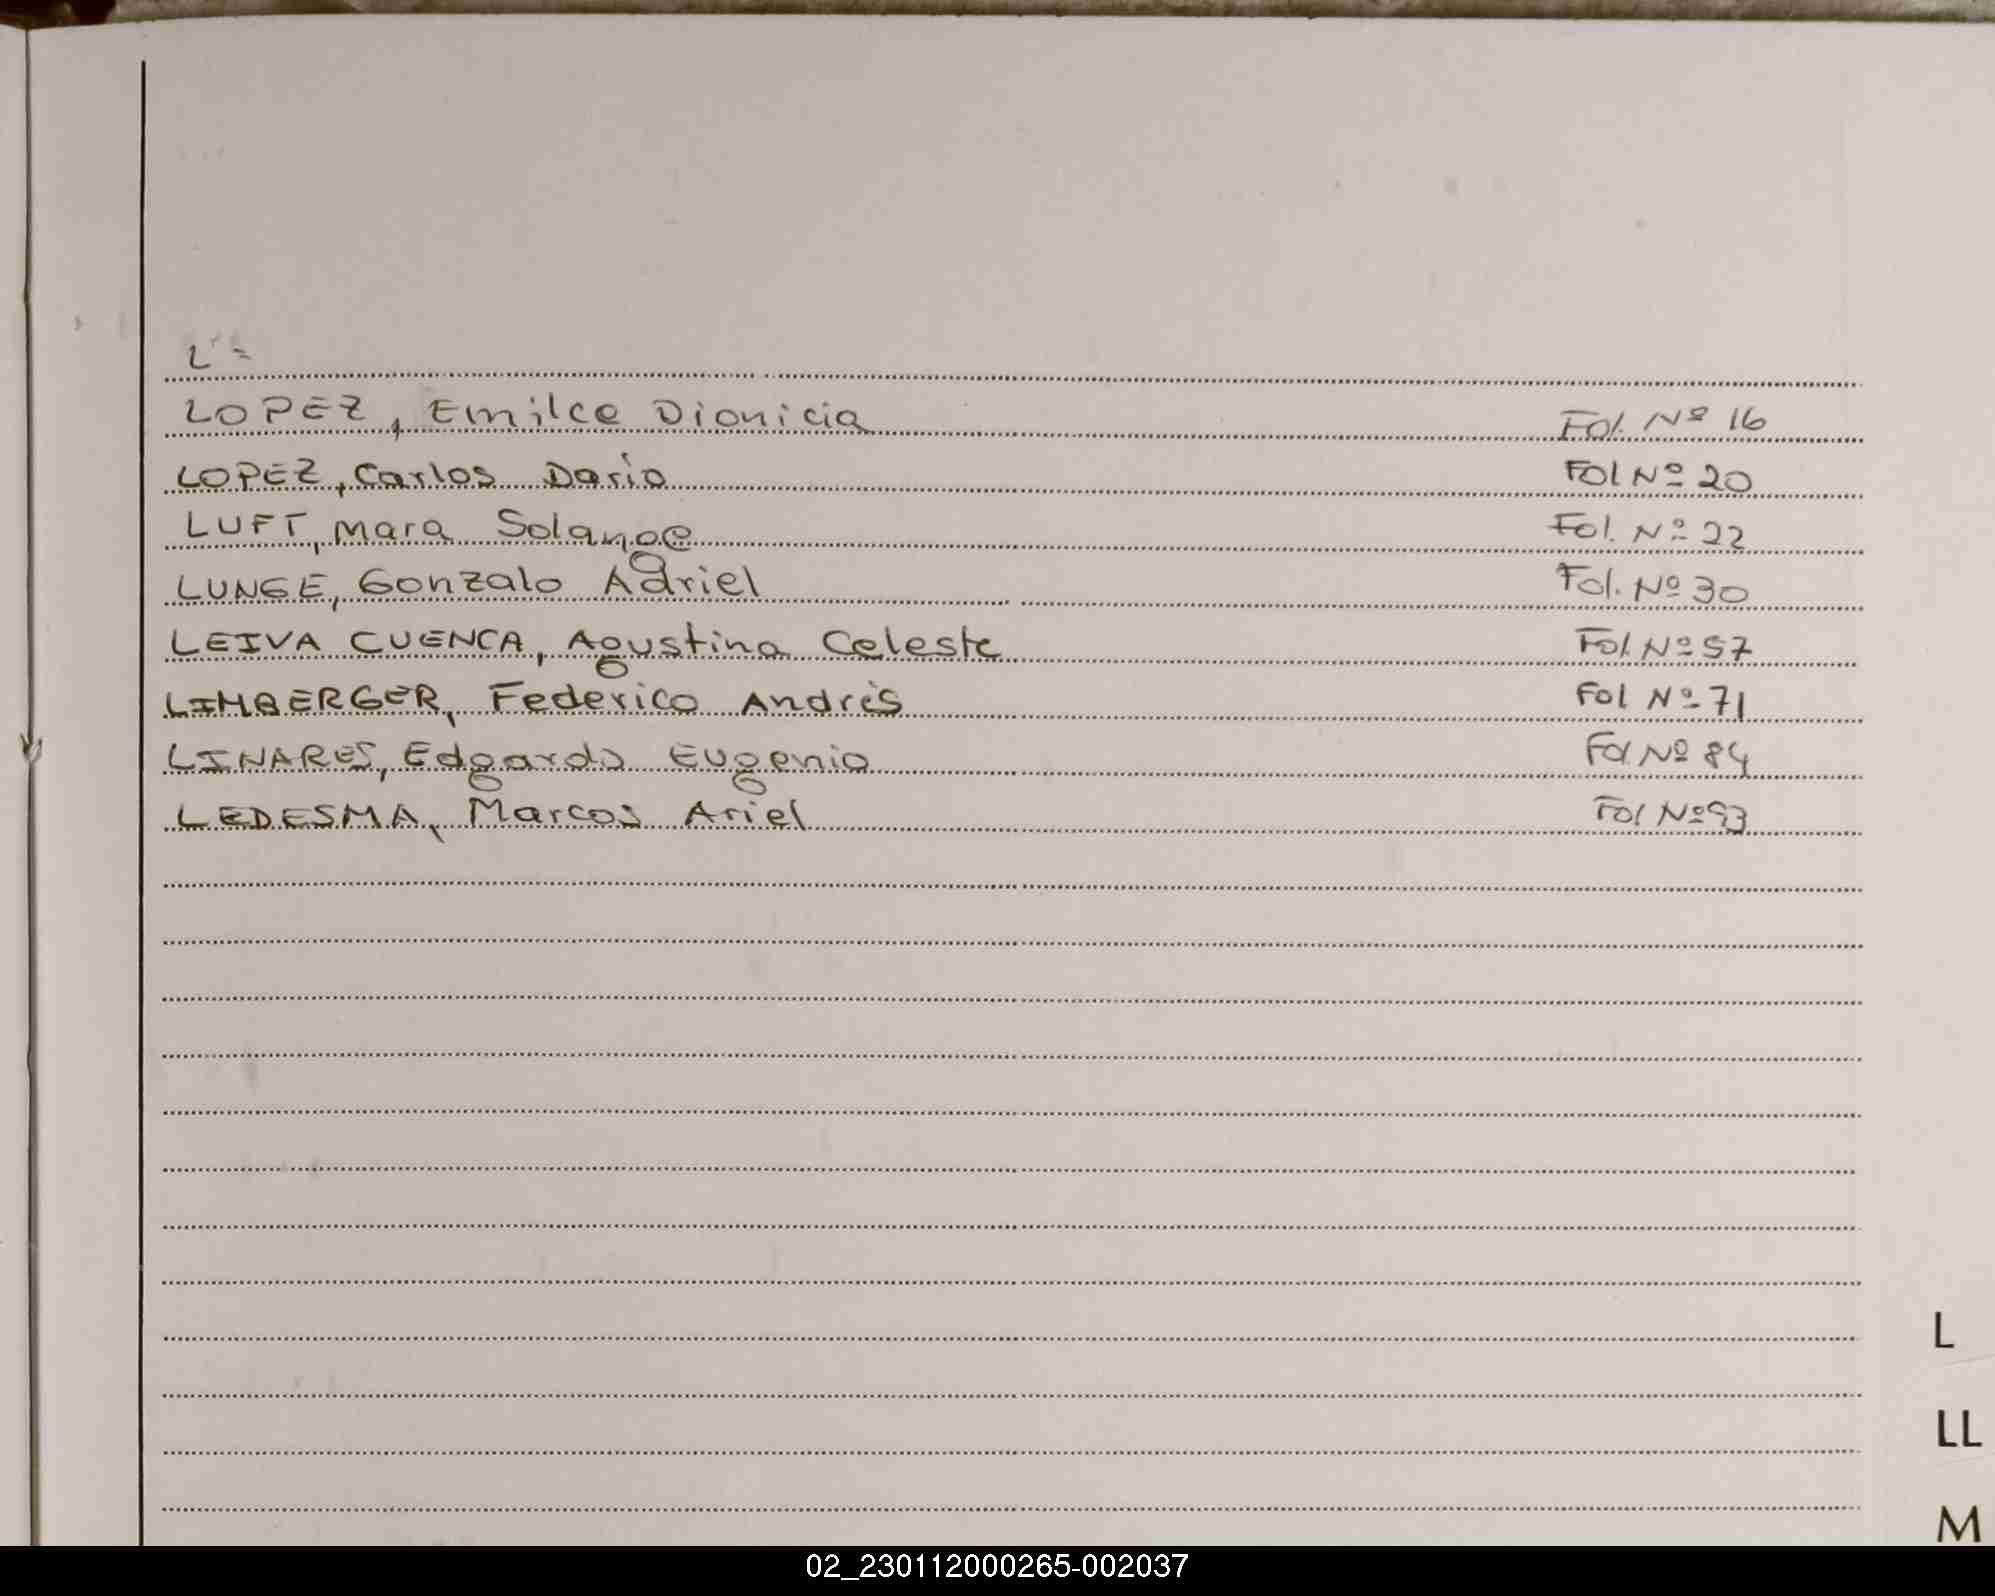 L =
LOPEZ, Emilce Dionicia Fol. Nº 16
LOPEZ, Carlos Dario Fol Nº 20
LUFT, Mara Solange Fol. Nº 22
LUNGE, Gonzalo Adriel Fol. Nº 30
LEIVA CUENCA, Agustina Celeste Fol. Nº 57
LIMBERGER, Federico Andrés Fol Nº 71
LINARES, Edgardo Eugenio Fol Nº 84
LEDESMA, Marcos Ariel Fol Nº 93
L
LL
M
02_230112000265-002037